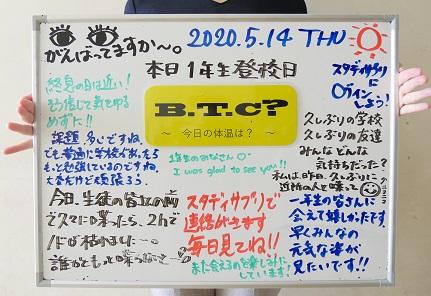 がんばってますか〜。
2020.5.14 THU
本日1年生登校日
終息の日は近い!
そう信じて気をゆる
めずに!!
B.T.C?
〜 今日の体温は？ 〜
スタディサプリに
ログイン
しよう!
課題 多いですね。
でも普通に学校があったら
もっと勉強しているのですね。
大変だけど頑張ろう
1年生のみなさん
I was glad to see you!!
久しぶりの学校
久しぶりの友達
みんなどんな
気持ちだった?
私は、昨日、久しぶりに
近所の人と喋って
今日、生徒の皆の前
で久々に喋ったら、2hで
誰かともっと喋っ
スタディサプリで
連絡ができます
毎日見てね!!
また会えるのを楽しみに
しています!
一年生の皆さんに
会えて嬉しかったです。
早くみんなの
元気な姿が
見たいです!!